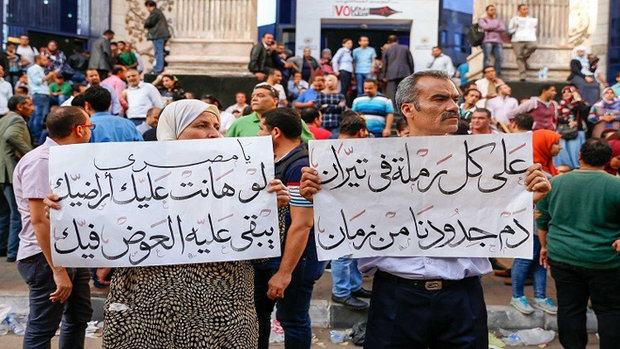 على كل رملة فى تيران
دم جدودنا من زمان
يا مصرى
لو هانت عليك أراضيك
يبقى عليه العوض فيك